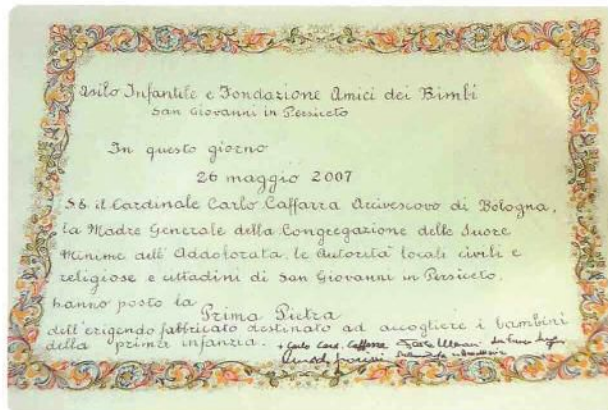 Asilo Infantile e Fondazione Amici dei Bimbi
San Giovanni in Persiceto
In questo giorno
26 maggio 2007
S.E. il Cardinale Carlo Caffarra Arcivescovo di Bologna,
la Madre Generale della Congregazione delle Suore
Minime dell'Addolorata, le Autorità locali civili e
religiose e cittadini di San Giovanni in Persiceto,
hanno posto la
Prima Pietra
dell'erigendo fabbricato destinato ad accogliere i bambini
della prima infanzia.
+ Carlo Card. Caffarra